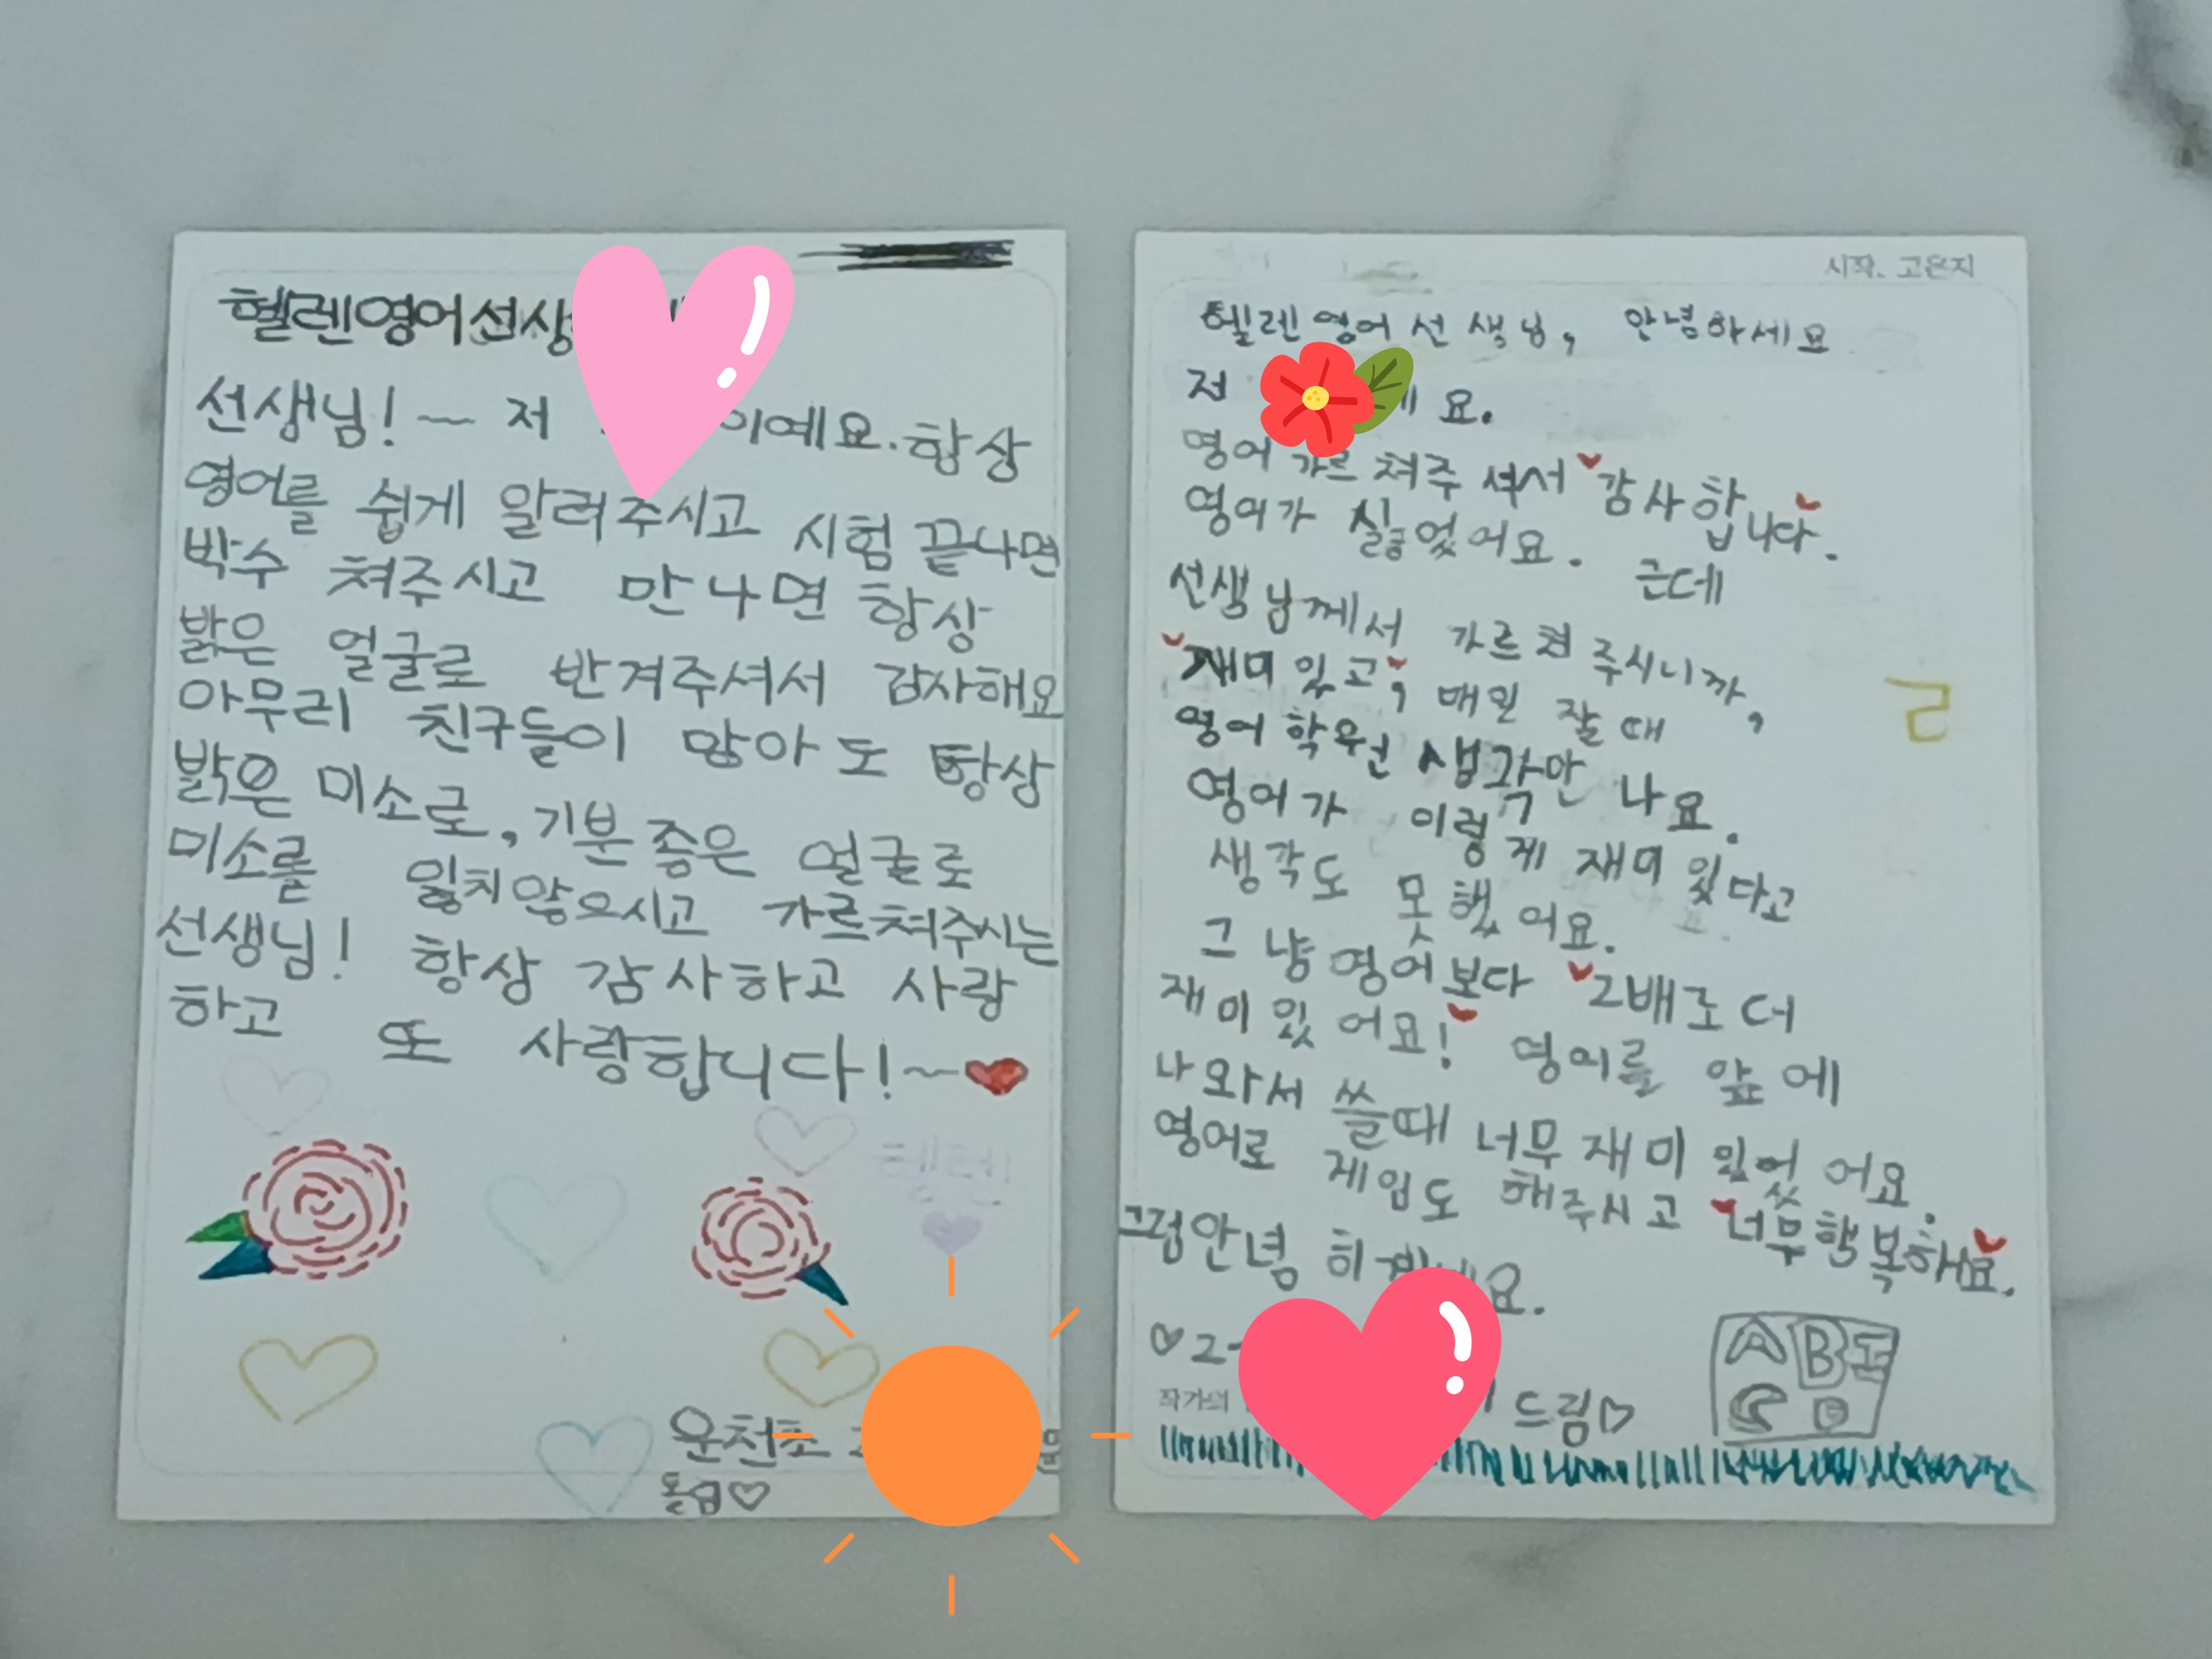 헬렌영어선생
선생님!~ 저 이예요.항상
영어를 쉽게 알려주시고 시험 끝나면
박수 쳐주시고 만나면 항상
밝은 얼굴로 반겨주셔서 감사해요
아무리 친구들이 많아도 항상
밝은 미소로,기분좋은 얼굴로
미소를 잃치않으시고 가르쳐주시는
선생님! 항상 감사하고 사랑
하고 또 사랑합니다!~
헬렌
운천초
올림♡
시작. 고은지
헬렌영어선생님, 안녕하세요
저 요.
영어 가르쳐주셔서 감사합니다.
영어가 싫었어요. 근데
선생님께서 가르쳐주시니까,
재미있고, 매일 잘때
영어학원 생각만 나요.
영어가 이렇게 재미있다고
생각도 못했어요.
그냥영어보다 2배로 더
재미있어요! 영어를 앞에
나와서 쓸때 너무재미있었어요.
영어로 게임도 해주시고 너무행복해요.
그럼안녕히계세요.
♡2-
작가의 드림♡
ㄹ
A B